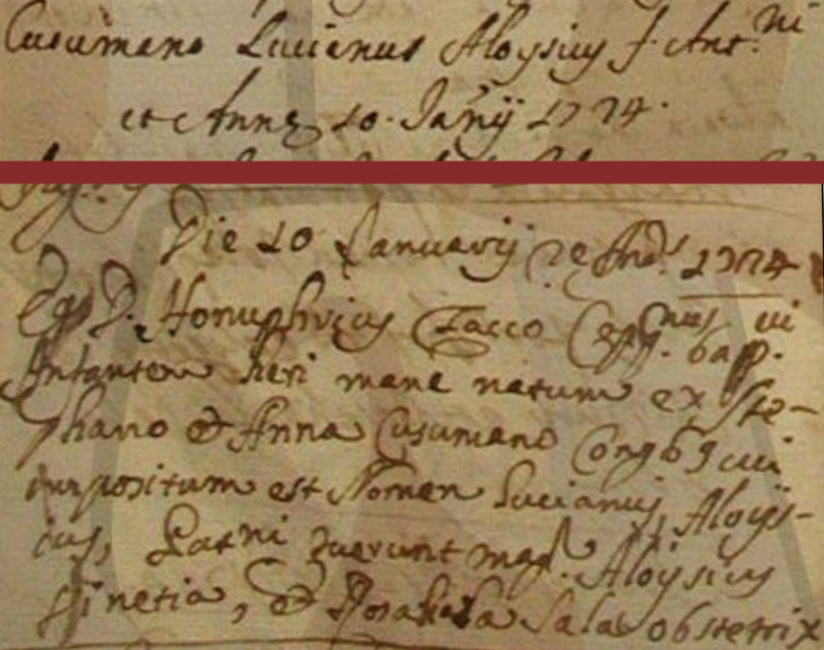 Cusumano Lucianus Aloysius f. Ant.ni
et Annę 10. Janrij 1774.
Die 10 Januarij 7e Ind.s 1774
Ego D. Honuphrius Tacco Capp.nus ui
Infantem heri mane natum ex Ste-
phano et Anna Cusumano Cong
impositum est Nomen Lucianus, Aloijs-
ius, Patrni fuerunt mag.r Aloijsius
Finetia, et Rosalia Sala obstetrix